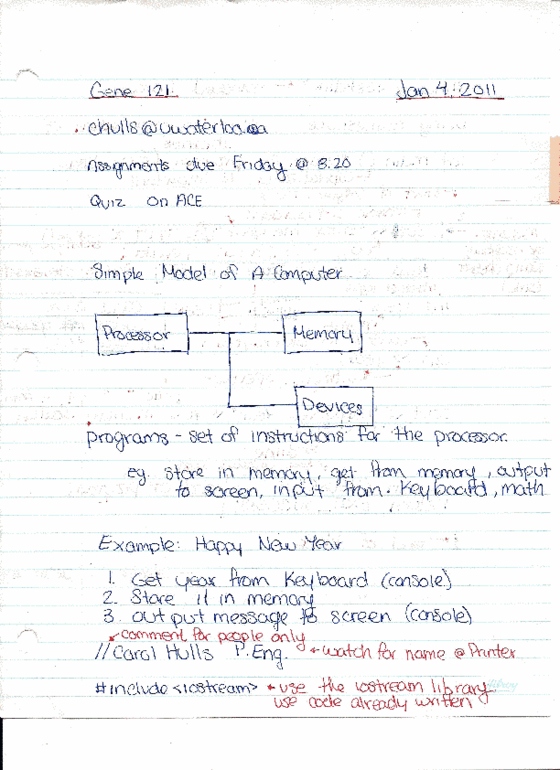 Gene 121 Jan 4, 2011
chulls@uwaterloo.ca
Assignments due Friday @ 8:20
Quiz on ACE
Simple Model of A Computer
Processor Memory
Devices
programs - set of instructions for the processor.
eg. store in memory, get from memory, output
to screen, input from keyboard, math
Example: Happy New Year
1. Get year from Keyboard (console)
2. Store it in memory
3. output message to screen (console)
comment for people only
//Carol Hulls P.Eng. watch for name @ Printer
#include <iostream> use the iostream library
use code already written